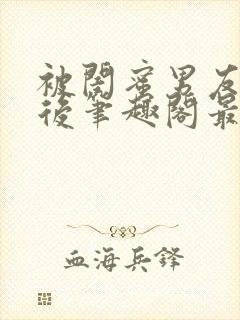 被闺蜜男友
后笔趣阁最
血海兵锋